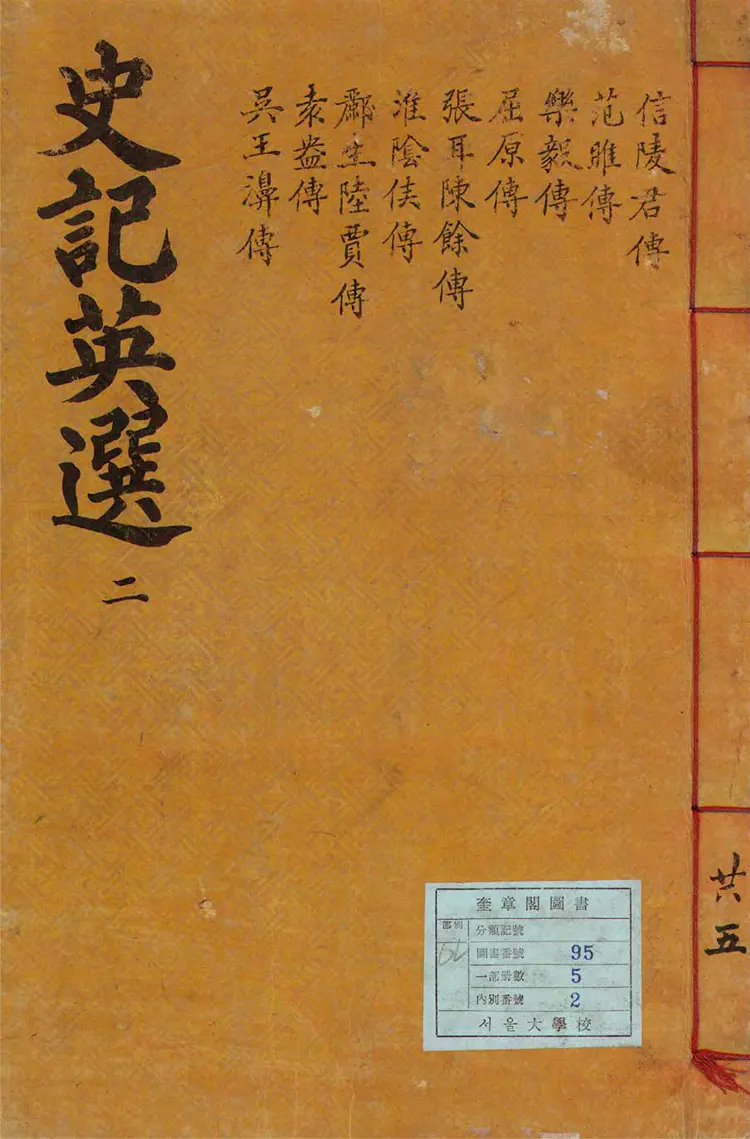 信陵君傳
范雎傳
樂毅傳
屈原傳
張耳陳餘傳
淮陰侯傳
酈生陸賈傳
袁盎傳
吳王濞傳
史記英選
二
共五
奎章閣圖書
部別
分類記號
圖書番號 95
一部冊數 5
內別番號 2
서울大學校